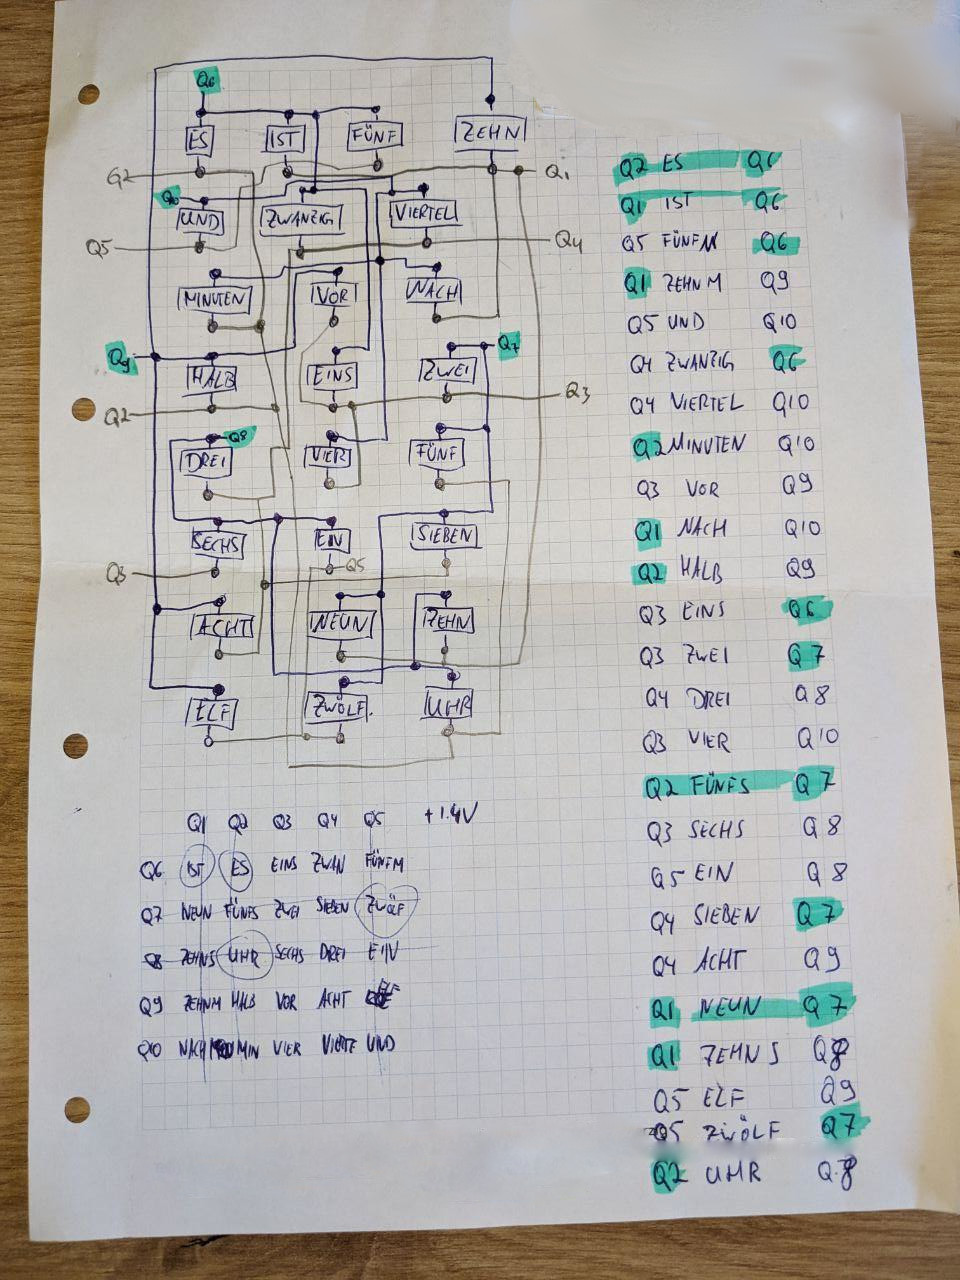 Q6
ES IST FÜNF ZEHN
Q2 Q1
UND ZWANZIG VIERTEL
Q5 Q4
MINUTEN VOR NACH
Q9 Q7
HALB EINS ZWEI
Q2 Q3
Q8
DREI VIER FÜNF
SECHS EIN SIEBEN
Q3 Q5
ACHT NEUN ZEHN
ELF ZWÖLF UHR
Q1 Q2 Q3 Q4 Q5 +1.4V
Q6 IST ES EINS ZWAN FÜNFM
Q7 NEUN FÜNFS ZWEI SIEBEN ZWÖLF
Q8 ZEHNS UHR SECHS DREI EIN
Q9 ZEHNM HALB VOR ACHT ELF
Q10 NACH MIN VIER VIERTE UND
Q2 ES Q6
Q1 IST Q6
Q5 FÜNFM Q6
Q1 ZEHN M Q9
Q5 UND Q10
Q4 ZWANZIG Q6
Q4 VIERTEL Q10
Q2 MINUTEN Q10
Q3 VOR Q9
Q1 NACH Q10
Q2 HALB Q9
Q3 EINS Q6
Q3 ZWEI Q7
Q4 DREI Q8
Q3 VIER Q10
Q2 FÜNFS Q7
Q3 SECHS Q8
Q5 EIN Q8
Q4 SIEBEN Q7
Q4 ACHT Q9
Q1 NEUN Q7
Q1 ZEHN S Q8
Q5 ELF Q9
Q5 ZWÖLF Q7
Q2 UHR Q8